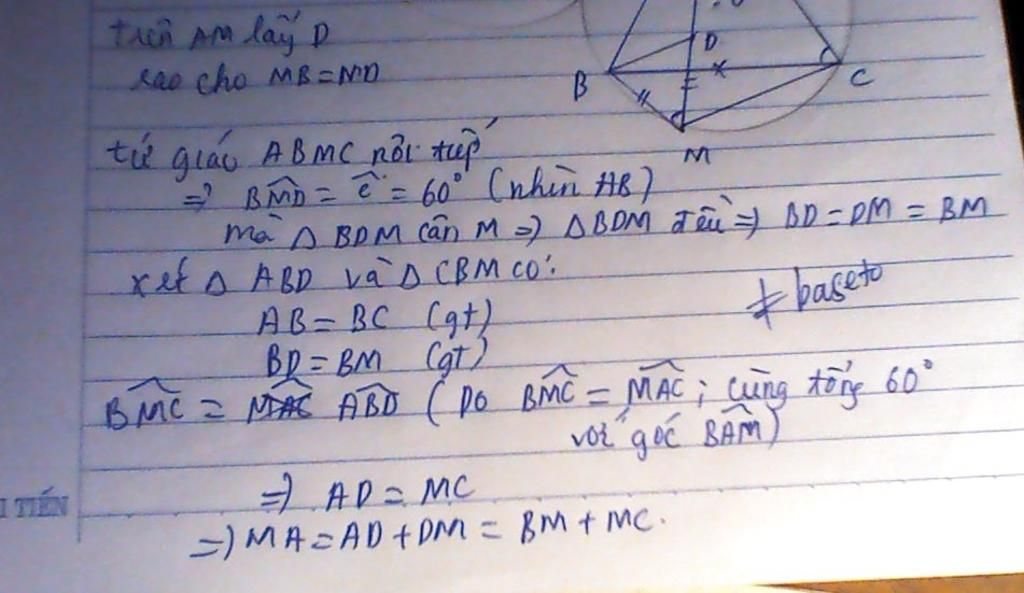 trên AM lấy D
sao cho MB = MD
D
B
C
M
tứ giác ABMC nội tiếp
=> BM̂D = ĉ = 60° (nhìn AB)
mà △ BDM cân M => △BDM đều => BD = DM = BM
xét △ ABD và △ CBM có:
AB = BC (gt)
≠ baseto
BD = BM (gt)
BM̂C = MÂC AB̂D (Do BM̂C = MÂC; cùng tổng 60°
với góc BÂM)
=> AD = MC
I TIẾN
=> MA = AD + DM = BM + MC.